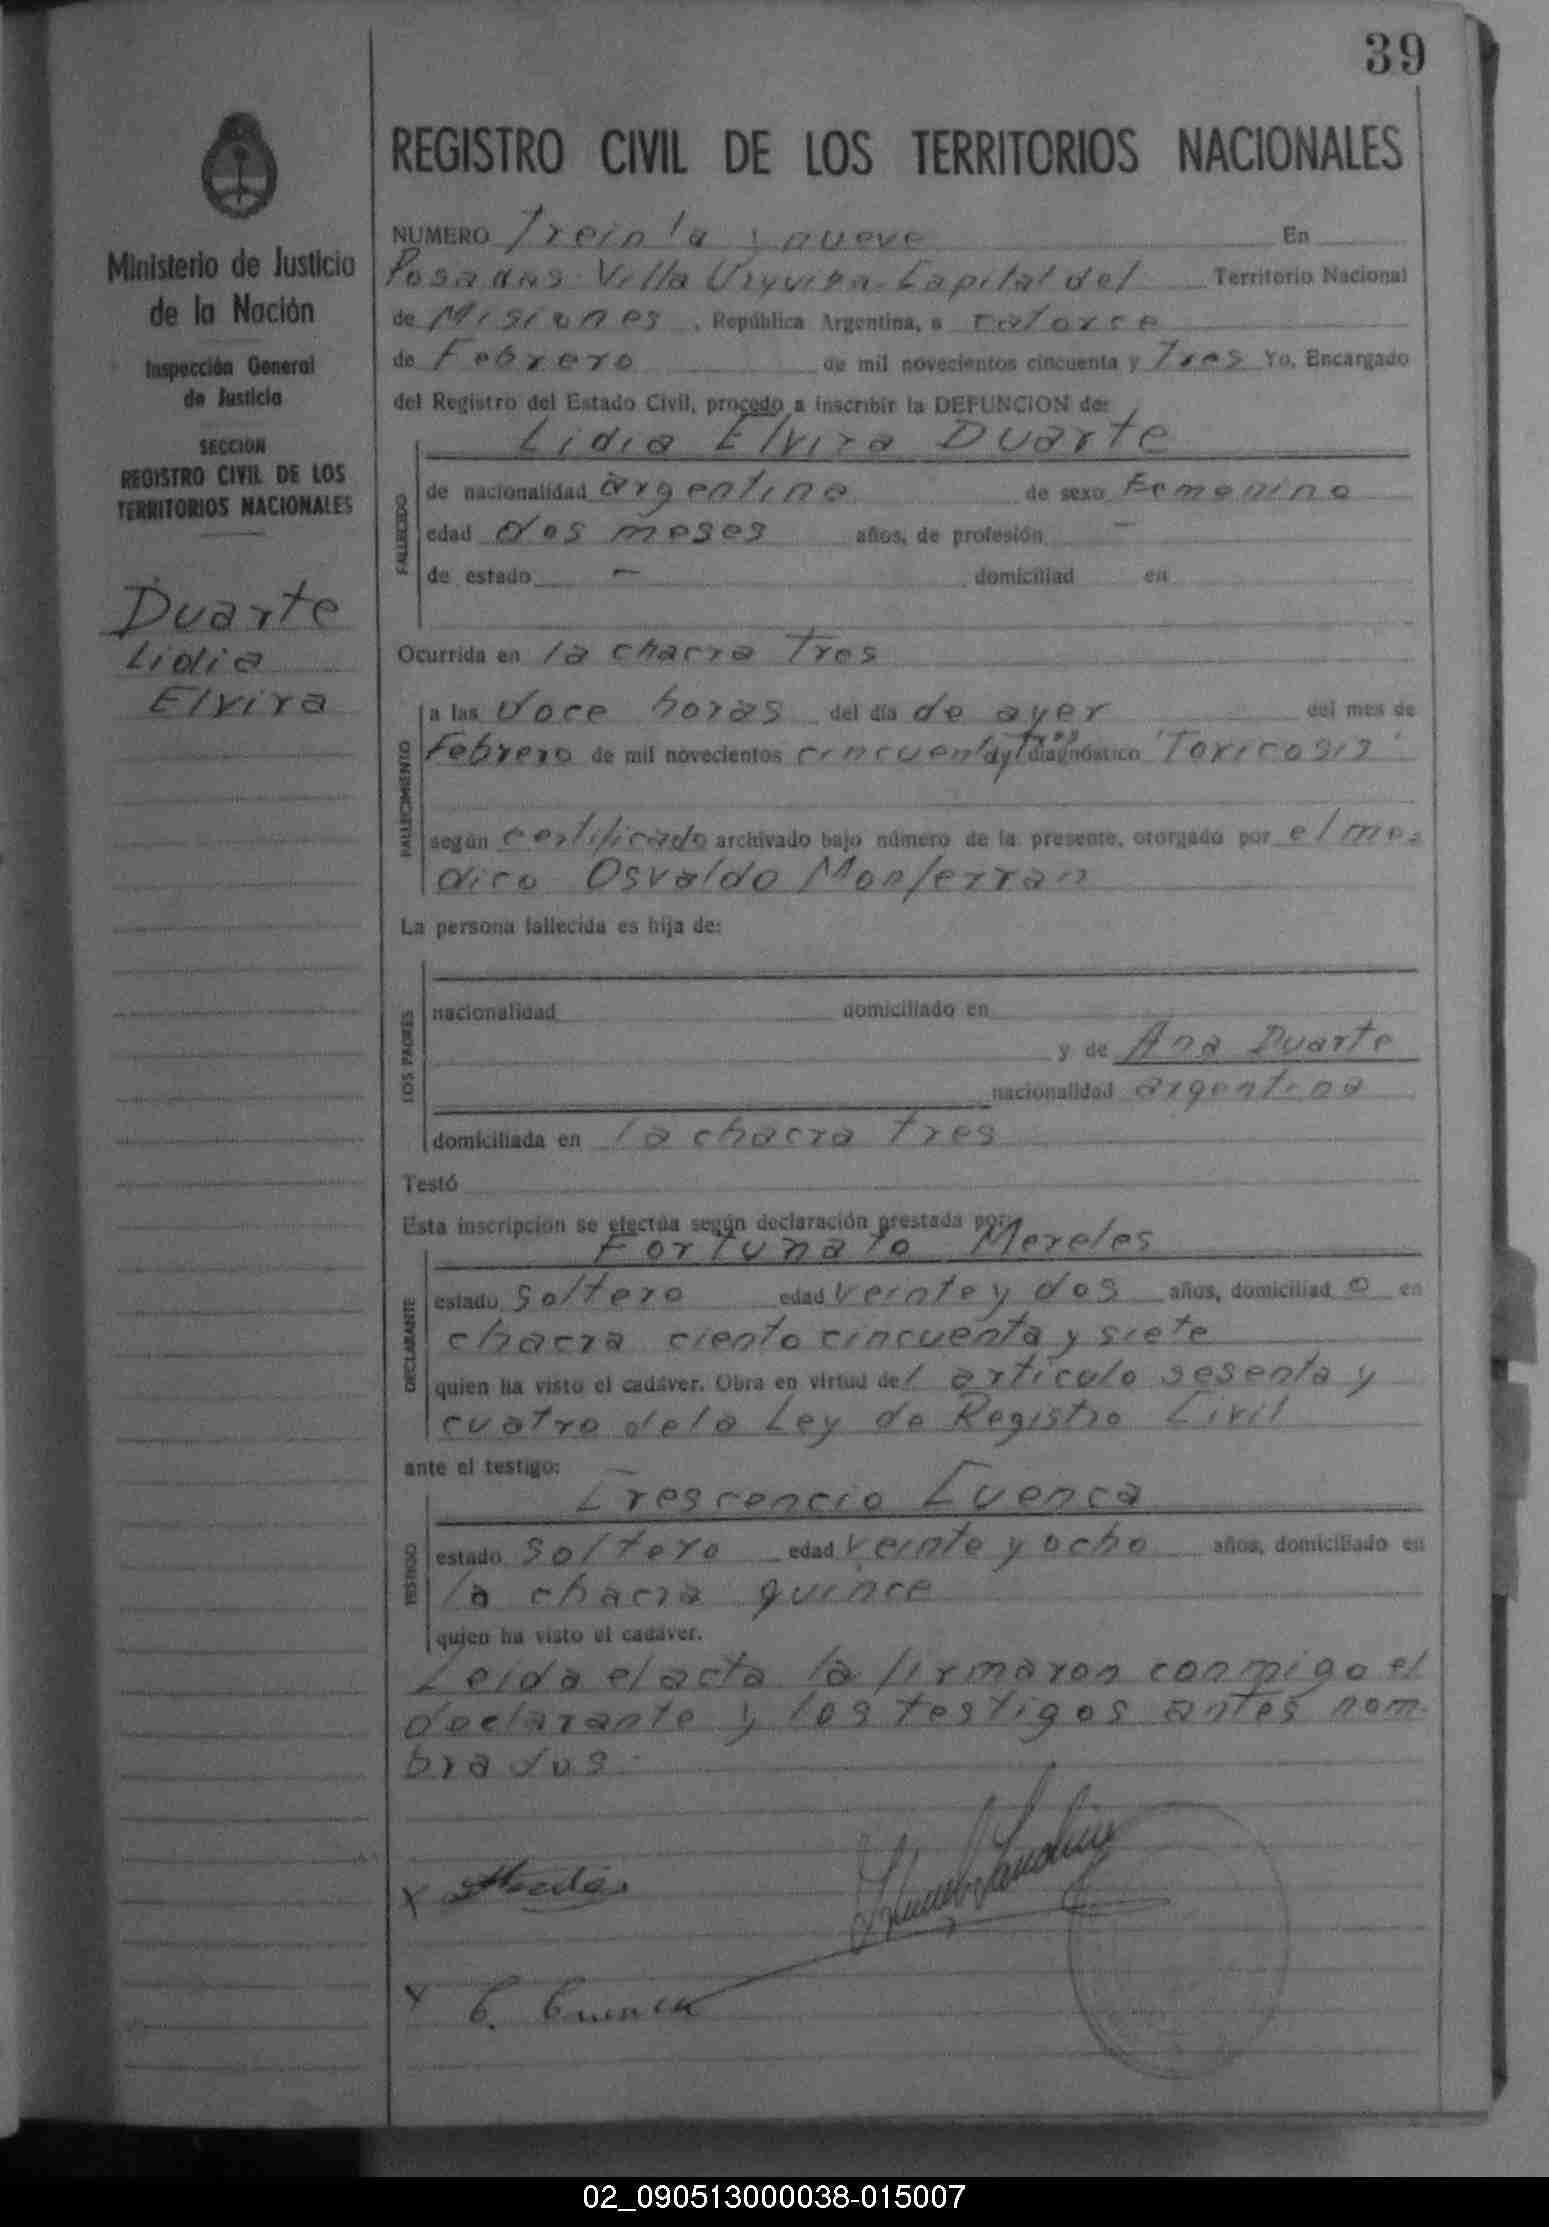 39
REGISTRO CIVIL DE LOS TERRITORIOS NACIONALES
Ministerio de Justicia
de la Nación
Inspección General
de Justicia
SECCION
REGISTRO CIVIL DE LOS
TERRITORIOS NACIONALES
Duarte
Lidia
Elvira
NUMERO Treinta y nueve En
Posadas Villa Urquiza Capital del Territorio Nacional
de Misiones, República Argentina, a catorce
de Febrero de mil novecientos cincuenta y Tres Yo, Encargado
del Registro del Estado Civil, procedo a inscribir la DEFUNCION de:
Lidia Elvira Duarte
FALLECIDO
de nacionalidad argentina de sexo Femenino
edad dos meses años, de profesión —
de estado — domiciliad en
Ocurrida en la chacra Tres
FALLECIMIENTO
a las doce horas del día de ayer del mes de
Febrero de mil novecientos cincuenta y Tres diagnóstico "Toxicosis"
según certificado archivado bajo número de la presente, otorgado por el me-
dico Osvaldo Monferran
La persona fallecida es hija de:
LOS PADRES
nacionalidad domiciliado en
y de Ana Duarte
nacionalidad argentina
domiciliada en la chacra tres
Testó
Esta inscripción se efectúa según declaración prestada por:
Fortunato Mereles
DECLARANTE
estado soltero edad veinte y dos años, domiciliad o en
chacra ciento cincuenta y siete
quien ha visto el cadáver. Obra en virtud del articulo sesenta y
cuatro de la Ley de Registro Civil
ante el testigo:
Crescencio Cuenca
TESTIGO
estado soltero edad veinte y ocho años, domiciliado en
la chacra quince
quien ha visto el cadáver.
Leida el acta la firmaron conmigo el
declarante y los testigos antes nom-
brados.
X
X C. Cuenca
02_090513000038-015007